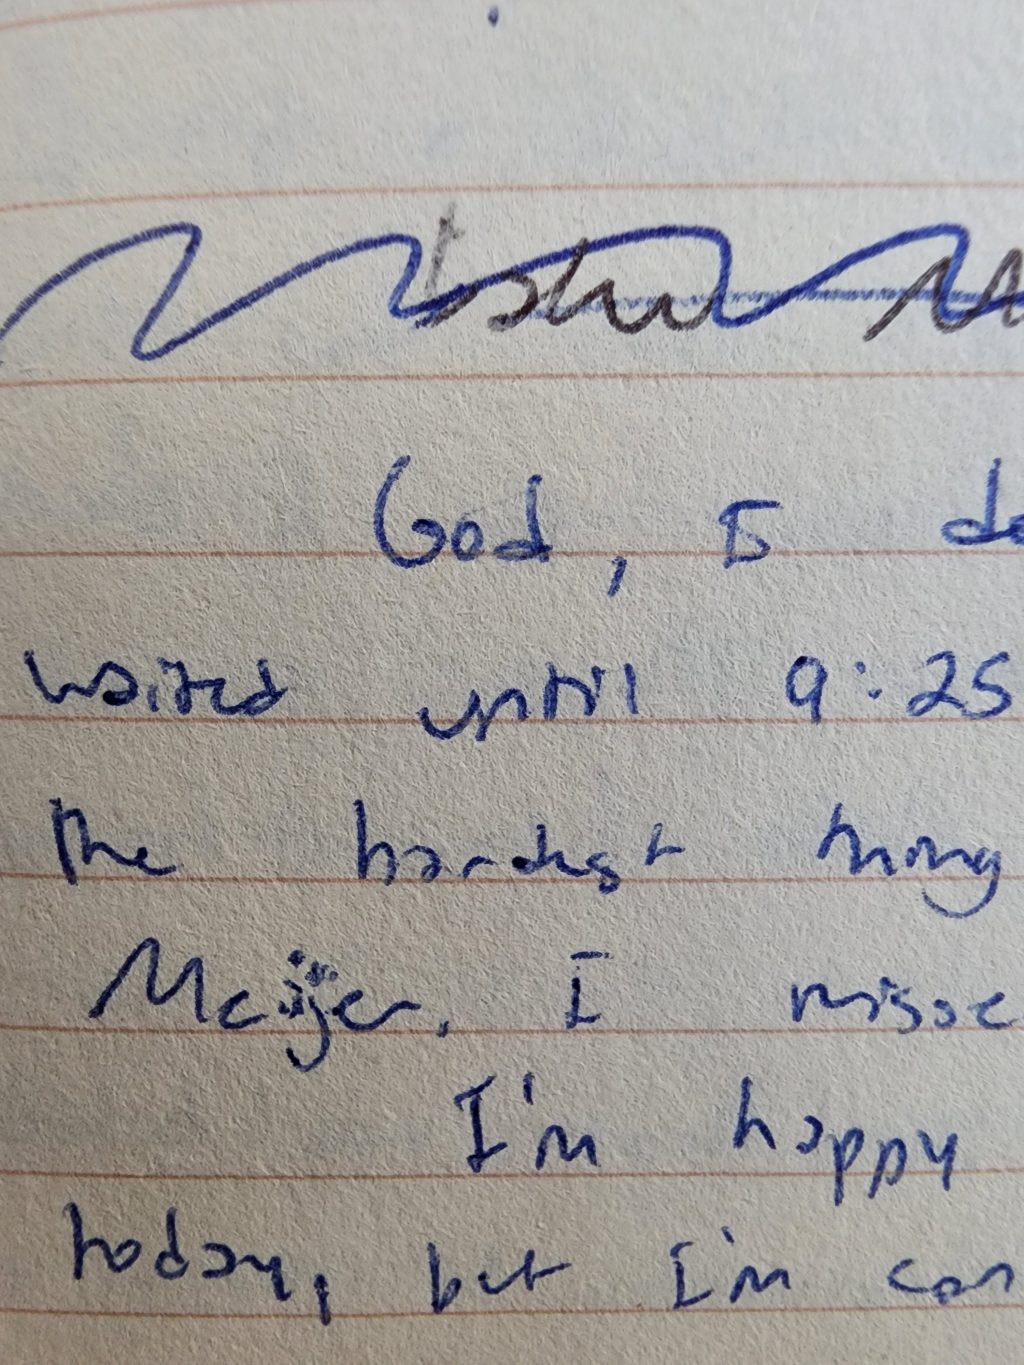 God, I
waited until 9:25
the hardest thing
Meijer. I
I'm happy
today, but I'm